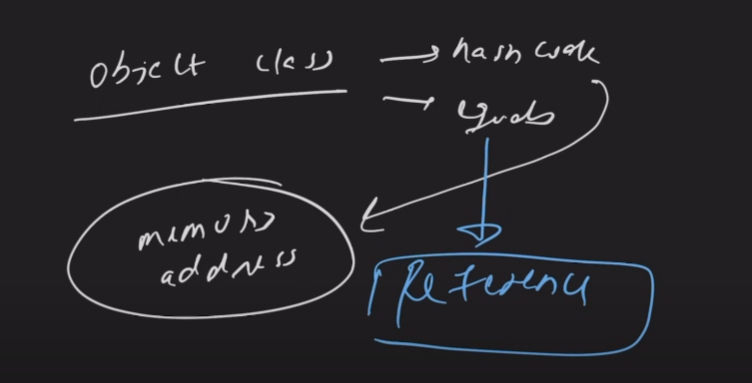 Object class → hashcode
→ equals
memory
address
Reference